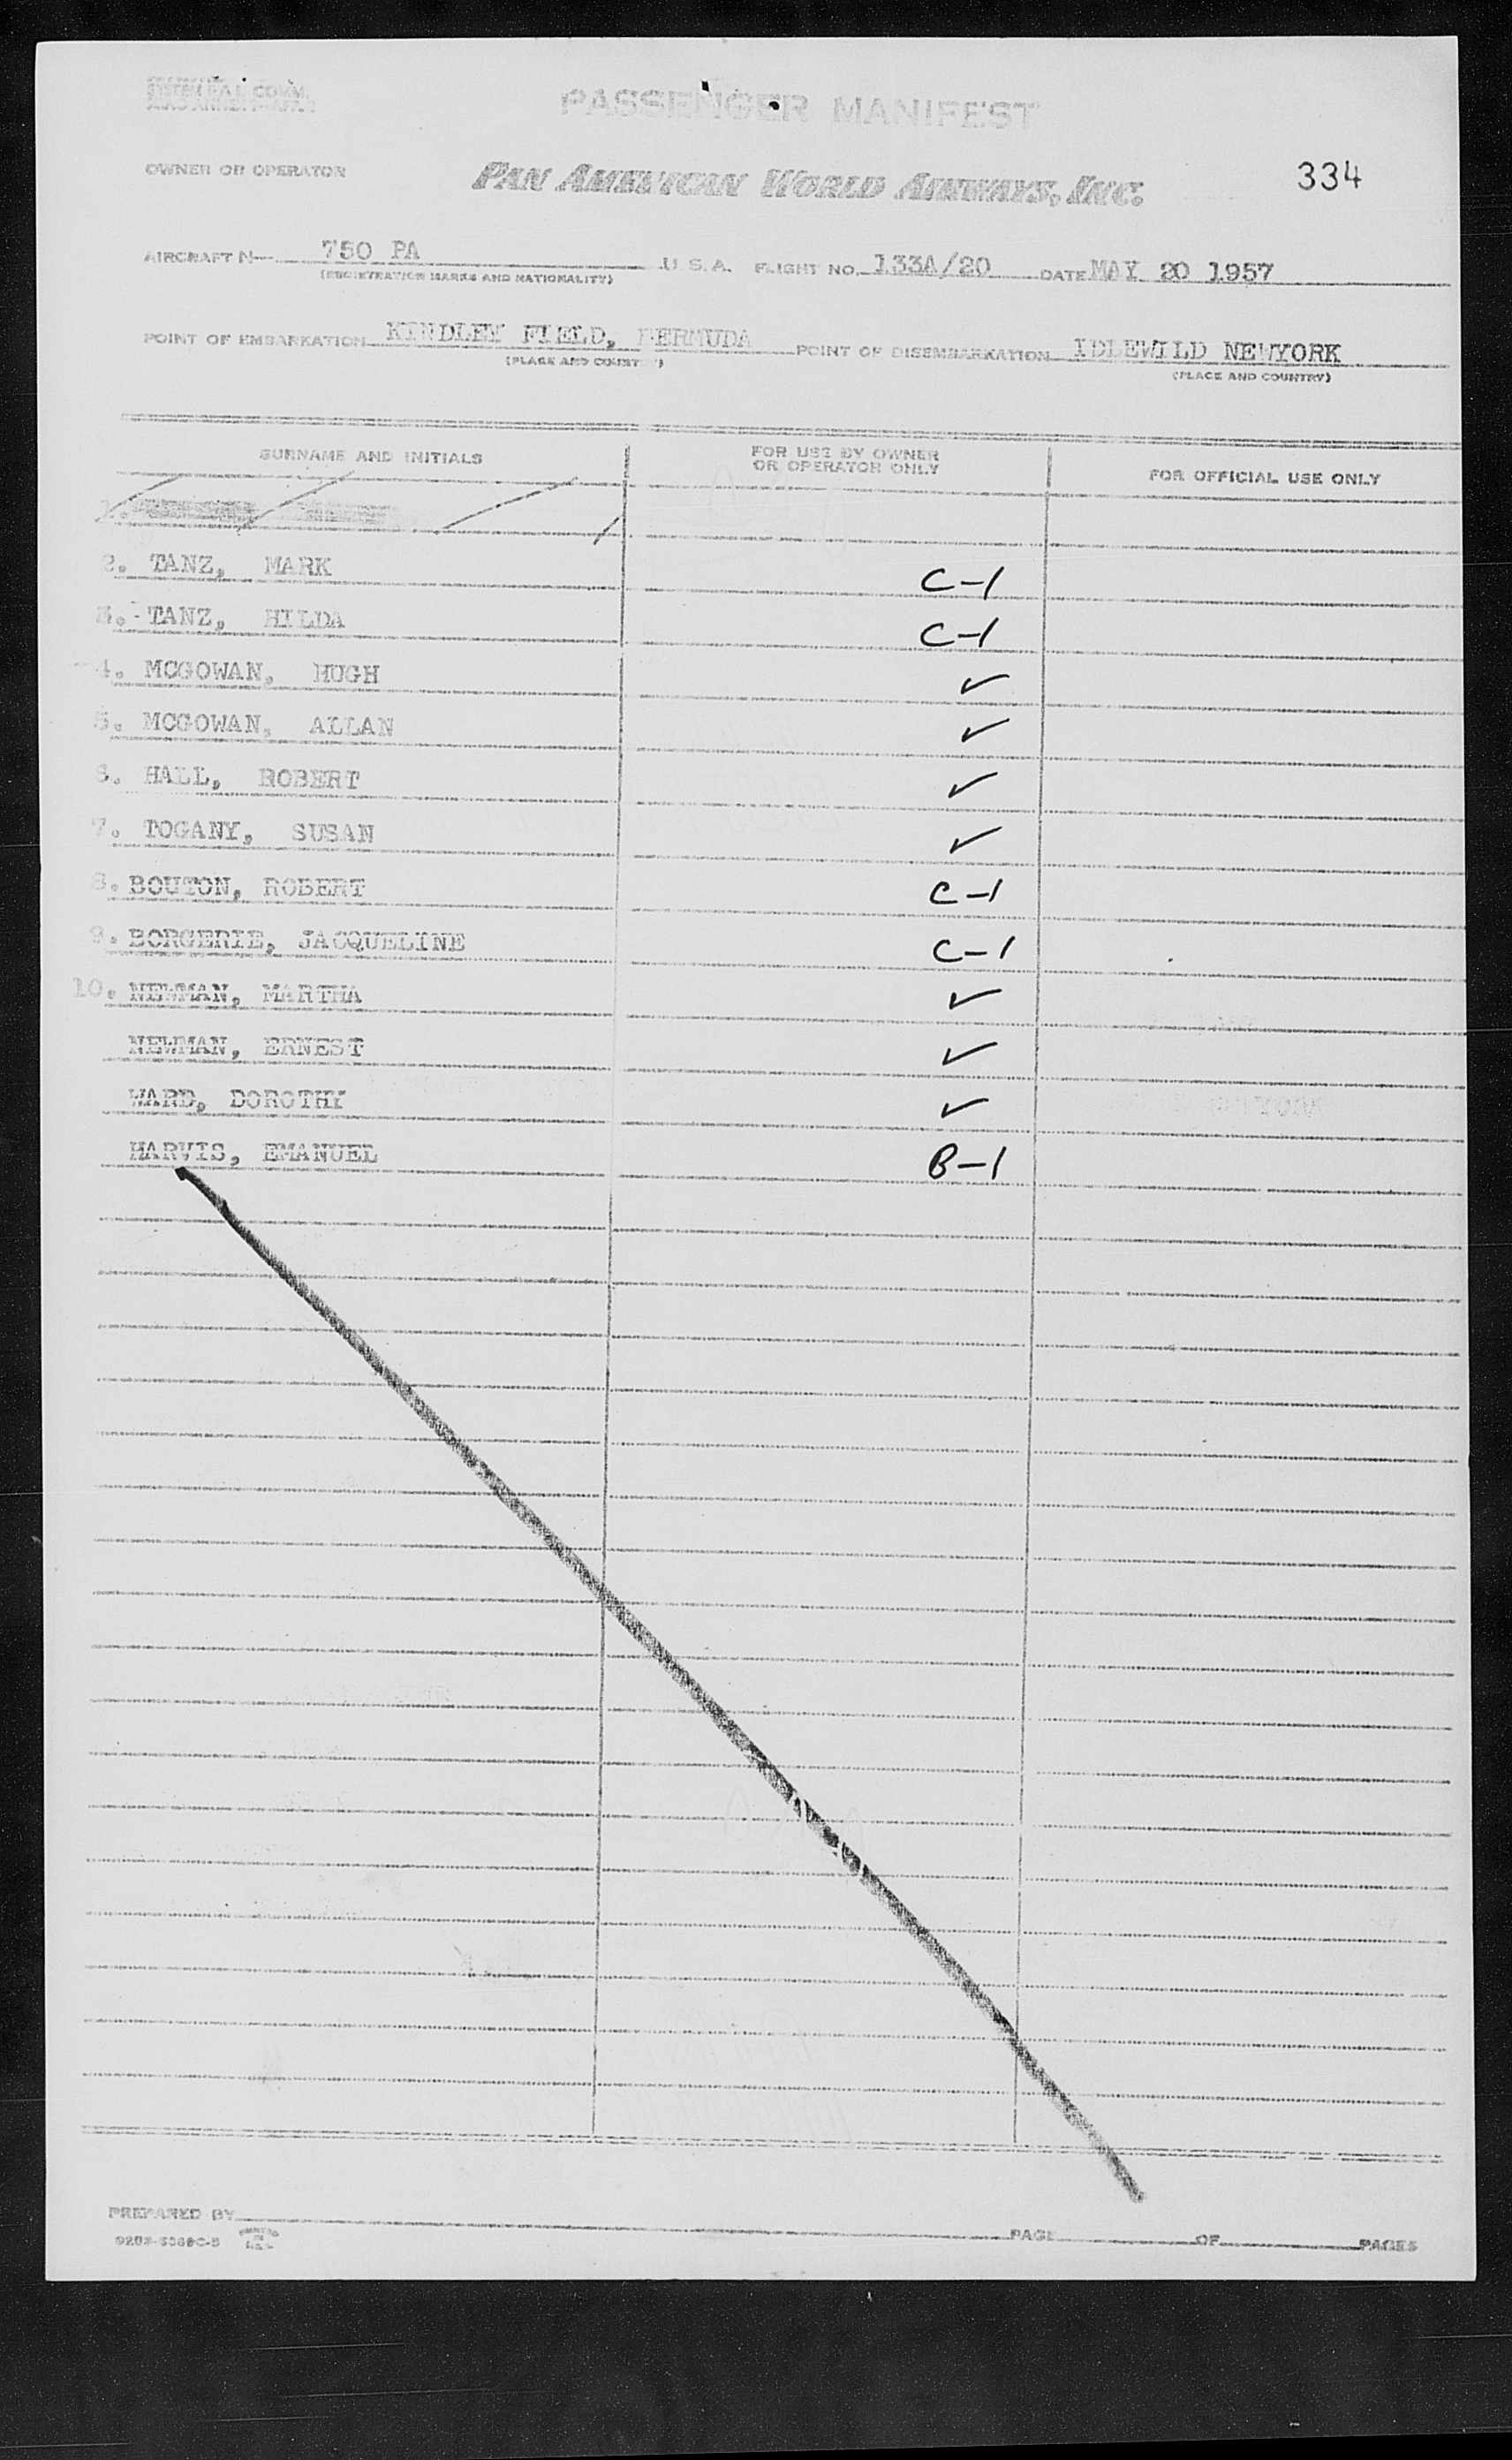 PASSENGER MANIFEST
OWNER OR OPERATOR PAN AMERICAN WORLD AIRWAYS, INC. 334
AIRCRAFT N— 750 PA U. S. A. FLIGHT NO. 133A/20 DATE MAY 20 1957
(REGISTRATION MARKS AND NATIONALITY)
POINT OF EMBARKATION KINDLEY FIELD, BERMUDA POINT OF DISEMBARKATION IDLEWILD NEWYORK
(PLACE AND COUNTRY) (PLACE AND COUNTRY)
SURNAME AND INITIALS FOR USE BY OWNER OR OPERATOR ONLY FOR OFFICIAL USE ONLY
1.
2. TANZ, MARK C-1
3. TANZ, HILDA C-1
4. MCGOWAN, HUGH ✓
5. MCGOWAN, ALLAN ✓
6. HALL, ROBERT ✓
7. TOGANY, SUSAN ✓
8. BOUTON, ROBERT C-1
9. BORGERIE, JACQUELINE C-1
10. NEWMAN, MARTHA ✓
NEWMAN, ERNEST ✓
WARD, DOROTHY ✓
HARVIS, EMANUEL B-1
PREPARED BY PAGE OF PAGES
PRINTED IN U.S.A.